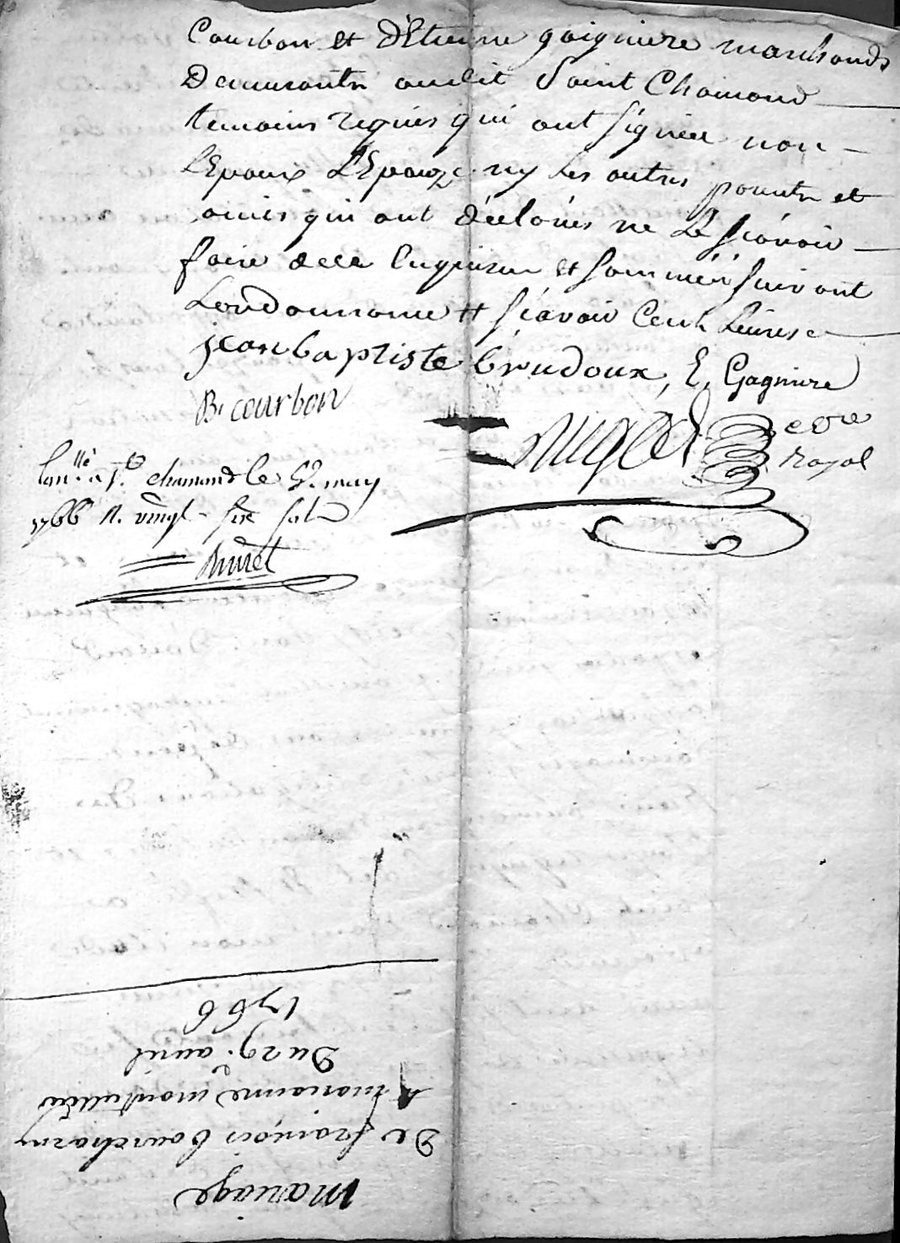 Courbon et d'Etienne gaigniere marchands
Demeurants audit Saint Chamond
temoins requis qui ont signéz non
l'Epoux L'Epouze ny les autres parents et
amis qui ont déclarés ne Le sçavoir
faire de ce Enquis et sommés suivant
Lordonnance sçavoir Cent Livres
jean baptiste brudoux, E, Gagniere
B. courbon
royal
Con.llé à St. chamond le 9e may
1766 R. vingt six sols
mariage
De françois bourcharny
& marianne
Du 29. avril
1766